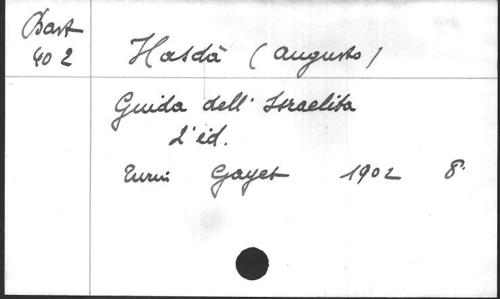 Bast
40 2
Hasdà (Augusto)
Guida dell' Israelita
2' ed.
Turin Gayet 1902 8°